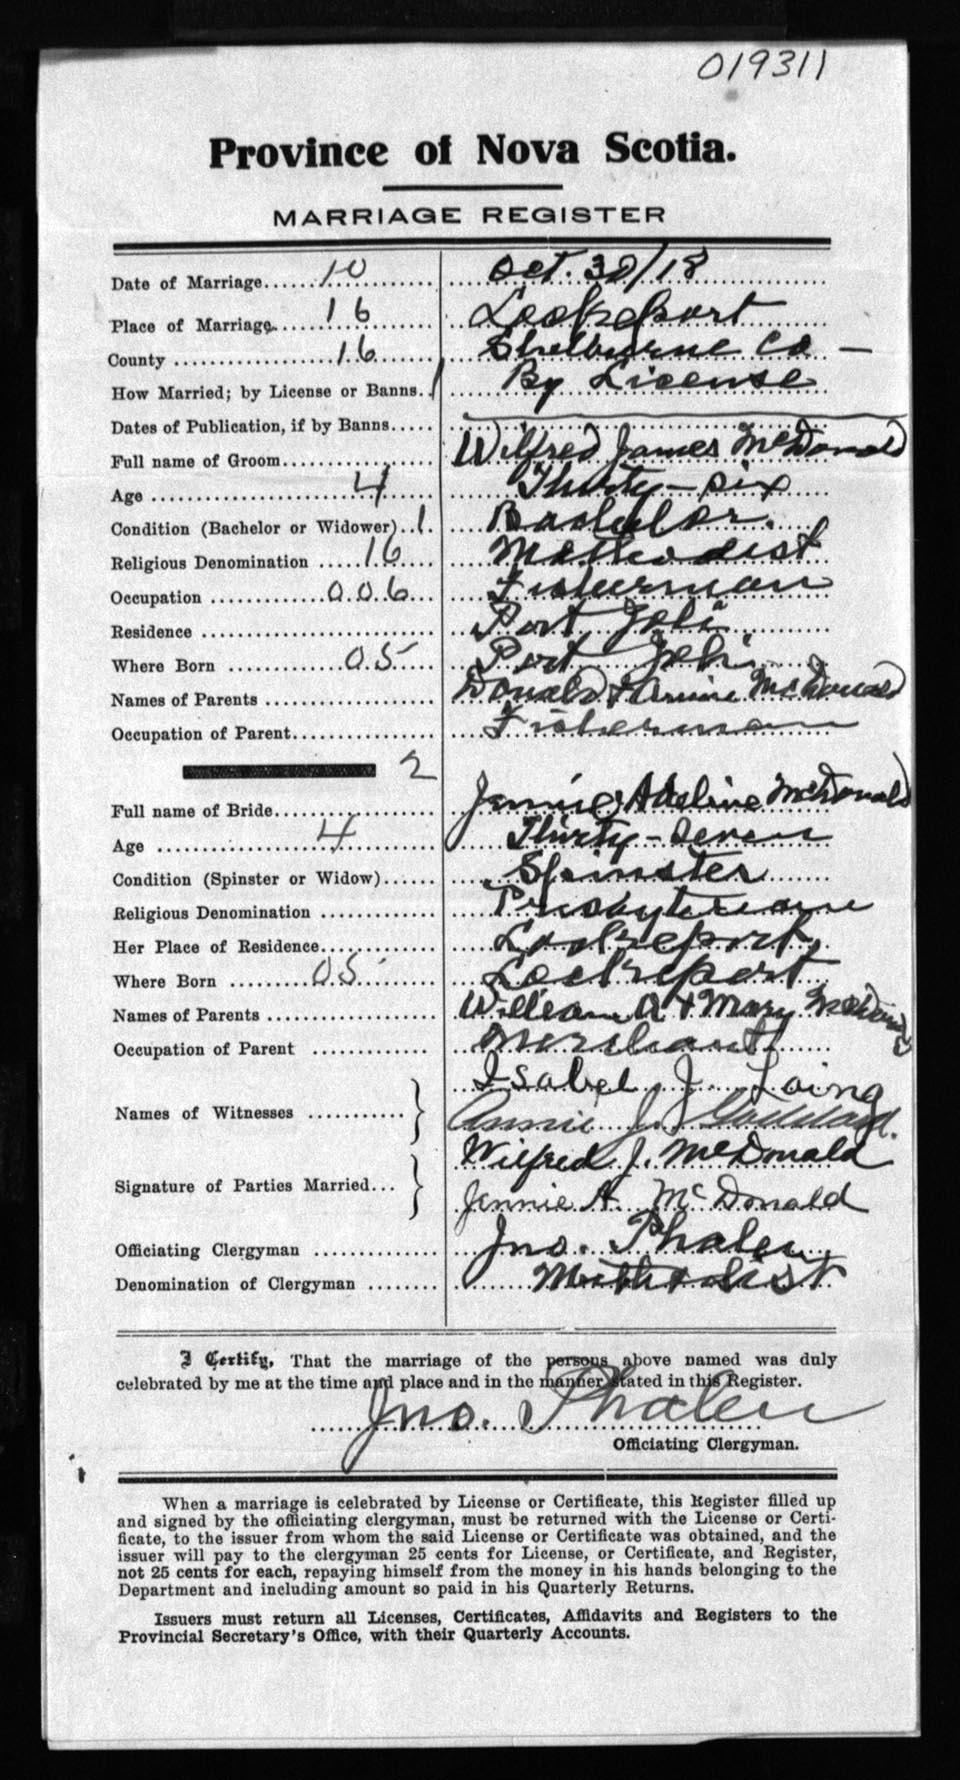 019311
Province of Nova Scotia.
MARRIAGE REGISTER
Date of Marriage 10 Oct. 30/18
Place of Marriage 16 Lockeport
County 16 Shelburne Co —
How Married; by License or Banns 1 By License
Dates of Publication, if by Banns
Full name of Groom Wilfred James McDonald
Age 4 Thirty-six
Condition (Bachelor or Widower) 1 Bachelor.
Religious Denomination 16 Methodist
Occupation 006 Fisherman
Residence Port Joli
Where Born 05 Port Joli
Names of Parents Donald & Annie McDonald
Occupation of Parent Fisherman
2
Full name of Bride Jennie Adeline McDonald
Age 4 Thirty-seven
Condition (Spinster or Widow) Spinster
Religious Denomination Presbyterian
Her Place of Residence Lockeport
Where Born 05 Lockeport
Names of Parents William A & Mary McDonald
Occupation of Parent Merchant
Names of Witnesses Isabel J. Laing
Annie J.
Signature of Parties Married Wilfred J. McDonald
Jennie A. McDonald
Officiating Clergyman Jno. Phalen
Denomination of Clergyman Methodist
I Certify, That the marriage of the persons above named was duly
celebrated by me at the time and place and in the manner stated in this Register.
Jno. Phalen
Officiating Clergyman.
When a marriage is celebrated by License or Certificate, this Register filled up
and signed by the officiating clergyman, must be returned with the License or Certi-
ficate, to the issuer from whom the said License or Certificate was obtained, and the
issuer will pay to the clergyman 25 cents for License, or Certificate, and Register,
not 25 cents for each, repaying himself from the money in his hands belonging to the
Department and including amount so paid in his Quarterly Returns.
Issuers must return all Licenses, Certificates, Affidavits and Registers to the
Provincial Secretary's Office, with their Quarterly Accounts.